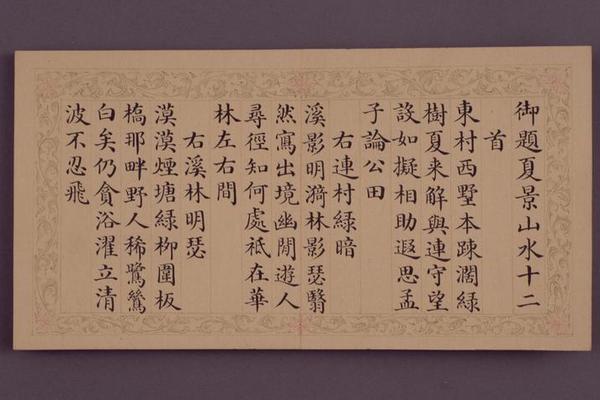 御題夏景山水十二
首
東村西墅本踈濶緑
樹夏来解與連守望
設如擬相助遐思孟
子論公田
右連村緑暗
溪影明漪林影瑟翳
然寫出境幽閒遊人
尋徑知何處祗在華
林左右間
右溪林明瑟
漠漠煙塘緑栁圍板
槗那畔野人稀鷺鷥
白矣仍貪浴濯立清
波不忍飛